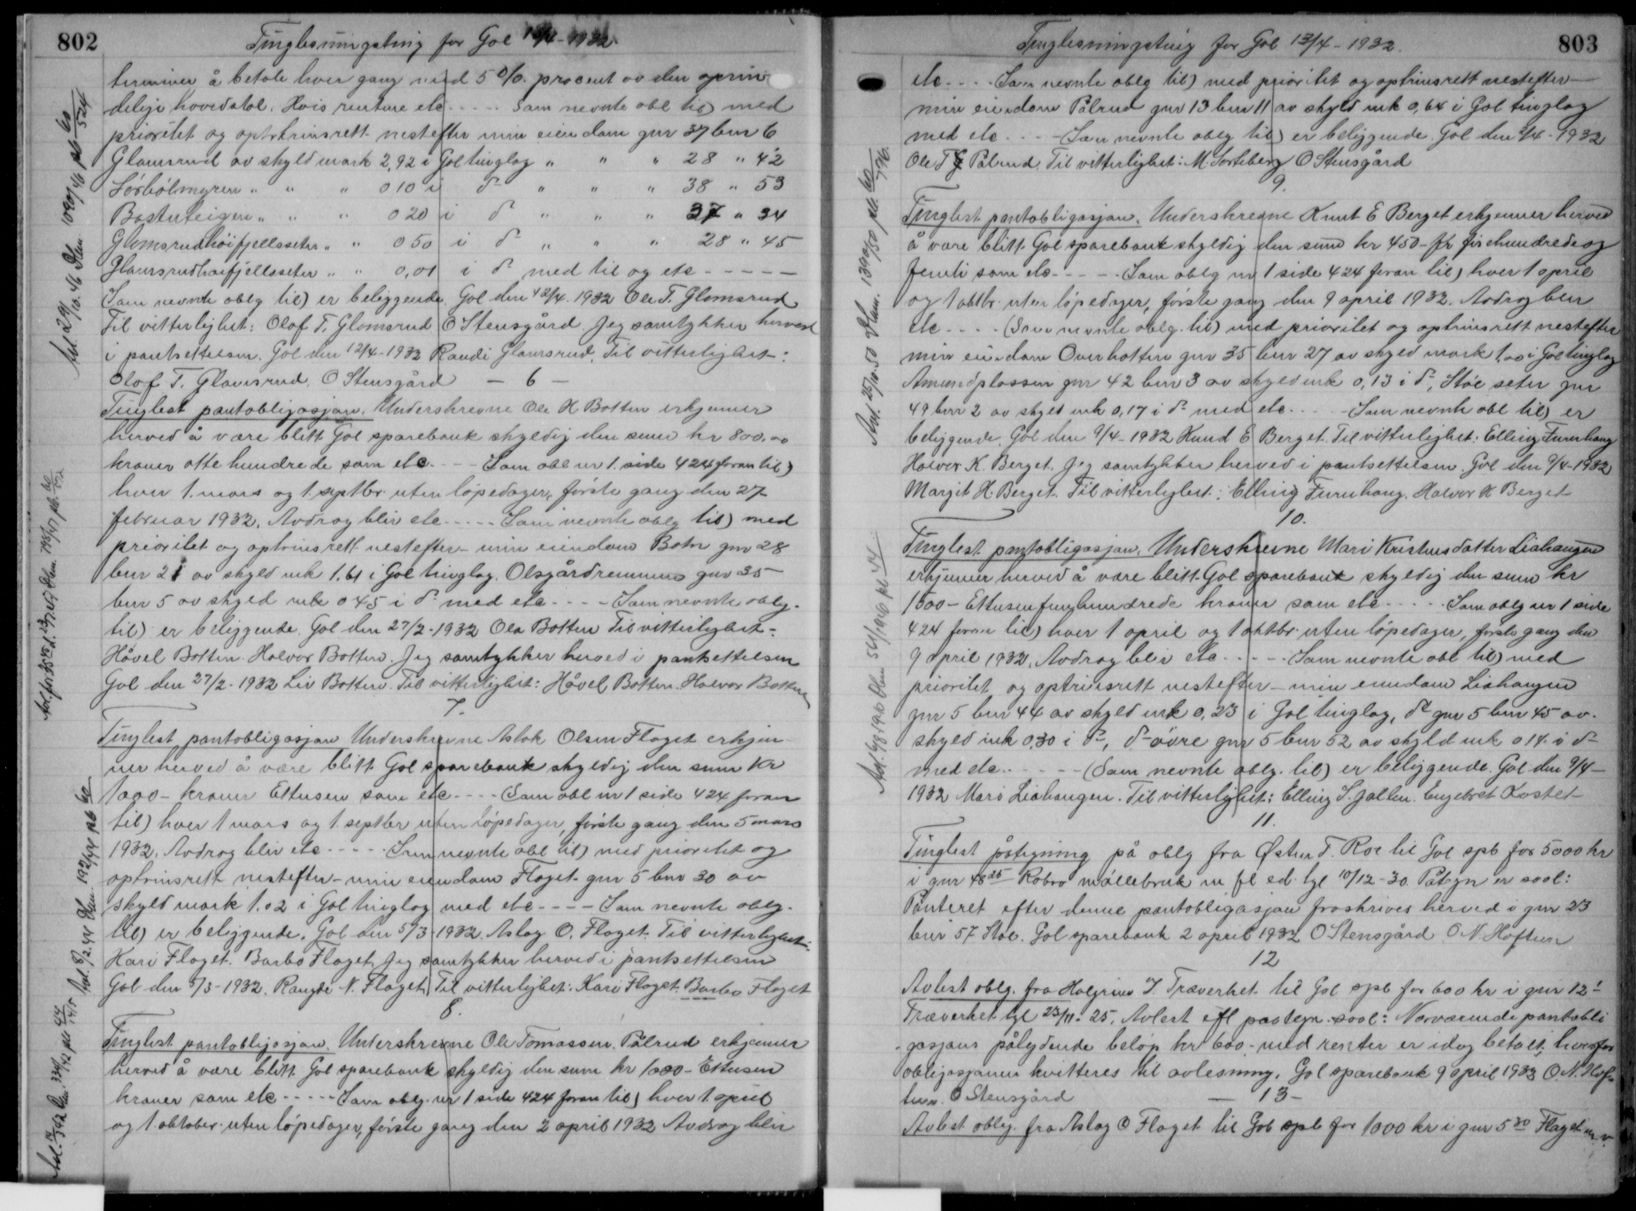 802
Tinglesningsting for Gol 12/4-1932
terminer å betale hver gang med 5 0/0. procent av den oprin
delige hovedstol. Hvis rentene etc ----- Sam nevnte obl til) med
prioritet og optrinsrett nestefter min eiendom gnr 37 bnr 6
Glomsrud av skyld mark 2,92 i Gol tinglag " " " 28 " 42
Lósbólmyren " " " 0 10 i do " " " 38 " 53
Bostuteigen " " " 0 20 i do " " " 37 " 34
Glomsrudhöifjellsseter " " 0 50 i do " " " 28 " 45
Glomsrudhöifjellsseter " " 0,01 i do med til og etc -----
Sam nevnte oblg til) er beliggende. Gol den 12/4. 1932 Ole T. Glomsrud
Til vitterlighet: Olaf T. Glomsrud O Stensgård. Jeg samtykker herved
i pantsettelsen. Gol den 12/4-1932 Randi Glomsrud. Til vitterlighet:
Olof T. Glomsrud. O Stensgård
— 6 —
Tinglest pantobligasjon. Underskrevne Ole H Botten erkjenner
herved å være blitt Gol sparebank skyldig den sum kr 800.00
kroner otte hundrede som etc --- Sam obl nr 1. side 424 foran til)
hver 1. mars og 1 septbr uten löpedager, förste gang den 27
februar 1932. Avdrag blir etc ----- Sam nevnte oblg til) med
prioritet og optrinsrett nestefter min eiendom Botn gnr 28
bnr 21 av skyld mk 1.61 i Gol tinglag. Olsgårdremmen gnr 35
bnr 5 av skyld mk 0 45 i do med etc ---- Sam nevnte oblg.
til) er beliggende. Gol den 27/2-1932 Ola Botten Til vitterlighet:
Håvel Botten. Halvor Botten. Jeg samtykker herved i pantsettelsen
Gol den 27/2-1932 Liv Botten. Til vitterlighet: Håvel Botten. Halvor Botten
7.
Tinglest pantobligasjon Underskrevne Aslak Olsen Flaget erkjen
ner herved å være blitt Gol sparebank skyldig den sum kr
1000 - kroner Ettusen som etc ---- (Sam obl nr 1 side 424 foran
til) hver 1 mars og 1. septbr uten löpedager, förste gang den 5 mars
1932. Avdrag blir etc ----- Sam nevnte obl til) med prioritet og
optrinsrett nestefter - min eiendom Flaget gnr 5 bnr 30 av
skyld mark 1.02 i Gol tinglag med etc ---- Sam nevnte oblg.
til) er beliggende. Gol den 5/3-1932. Aslag O. Flaget. Til vitterlighet:
Kari Flaget. Barbo Flaget. Jeg samtykker herved i pantsettelsen
Gol den 5/3-1932. Rangdi N. Flaget. Til vitterlighet: Kari Flaget. Barbo Flaget
8.
Tinglest pantobligasjon. Underskrevne Ole Tomassen Pålrud erkjenner
herved å være blitt Gol sparebank skyldig den sum kr 1000 - Ettusen
kroner som etc ----- Sam oblg. nr 1 side 424 foran til) hver 1 april
og 1 oktober uten löpedager, förste gang den 2 april 1932 Avdrag blir
803
Tinglesningsting for Gol 12/4-1932.
etc ---- Sam nevnte oblg til) med prioritet og optrinsrett nestefter
min eiendom Pålrud gnr 13 bnr 11 av skyld mk 0,64 i Gol tinglag
med etc ---- Sam nevnte oblg til) er beliggende. Gol den 2/4-1932
Ole T Pålrud. Til vitterlighet: M. Torsteberg O Stensgård
9.
Tinglest pantobligasjon. Underskrevne Knut E Berget erkjenner herved
å være blitt Gol sparebank skyldig den sum kr 450 - kr firehundrede og
femti som etc ---- Sam oblg nr 1 side 424 foran til) hver 1 april
og 1 oktbr. uten löpedager, förste gang den 9 april 1932. Avdrag blir
etc ---- (Sam nevnte oblg. til) med prioritet og optrinsrett nestefter
min eiendom Overbotten gnr 35 bnr 27 av skyld mark 1.00 i Gol tinglag
Amundplassen gnr 42 bnr 3 av skyld mk 0,13 i do, Stóe seter gnr
49 bnr 2 av skyld mk 0,17 i do med etc ---- Sam nevnte obl til) er
beliggende. Gol den 9/4-1932 Knud E Berget. Til vitterlighet: Elling Furuhaug
Halvor K. Berget. Jeg samtykker herved i pantsettelsen. Gol den 9/4-1932
Margit H. Berget. Til vitterlighet: Elling Furuhaug. Halvor K Berget
10.
Tinglest pantobligasjon. Underskrevne Mari Kristensdatter Liahaugen
erkjenner herved å være blitt Gol sparebank skyldig den sum kr
1500 - Ettusenfemhundrede kroner som etc ---- Sam oblg nr 1 side
424 foran til) hver 1 april og 1 oktbr. uten löpedager, förste gang den
9 april 1932. Avdrag bli etc ----- Sam nevnte obl til) med
prioritet og optrinsrett nestefter - min eiendom Liahaugen
gnr 5 bnr 44 av skyld mk 0,23 i Gol tinglag, do gnr 5 bnr 45 av
skyld mk 0,30 i do, do övre gnr 5 bnr 52 av skyld mk 0 14 i do
med etc ----- (Sam nevnte oblg. til) er beliggende. Gol den 9/4-
1932 Mari Liahaugen. Til vitterlighet: Elling S. Jallen. Engebret Kostet
11.
Tinglest påtegning på oblg fra Østen T. Roe til Gol spb for 5000 kr
i gnr 48 Robro möllebruk m fl ed. tgl 10/12-30. Påtegn er sool:
Panteret efter denne pantobligasjon fraskrives herved i gnr 23
bnr 57 Stól. Gol sparebank 2 april 1932 O Stensgård O N. Hoftun
12
Avlest oblg. fra Halgrim T Træverket til Gol spb for 600 kr i gnr 12
Træverket tgl 23/11. 25. Avlest efl paategn. sool: Nærværende pantobli
gasjons pålydende belop kr 600 - med renter er idag betalt, hvorfor
obligasjonen kvitteres til avlesning. Gol sparebank 9 april 1933 O. N. Hof-
tun. O Stensgård
— 13 —
Avlest oblig. fra Aslag O Flaget til Gol spb for 1000 kr i gnr 5 30 Flaget m. v.